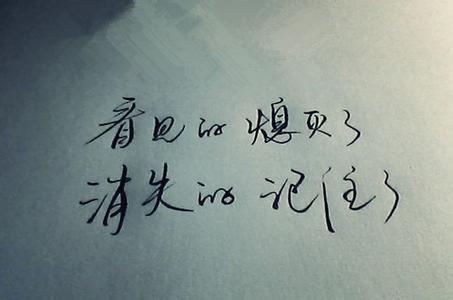 看见的熄灭了
消失的记住了